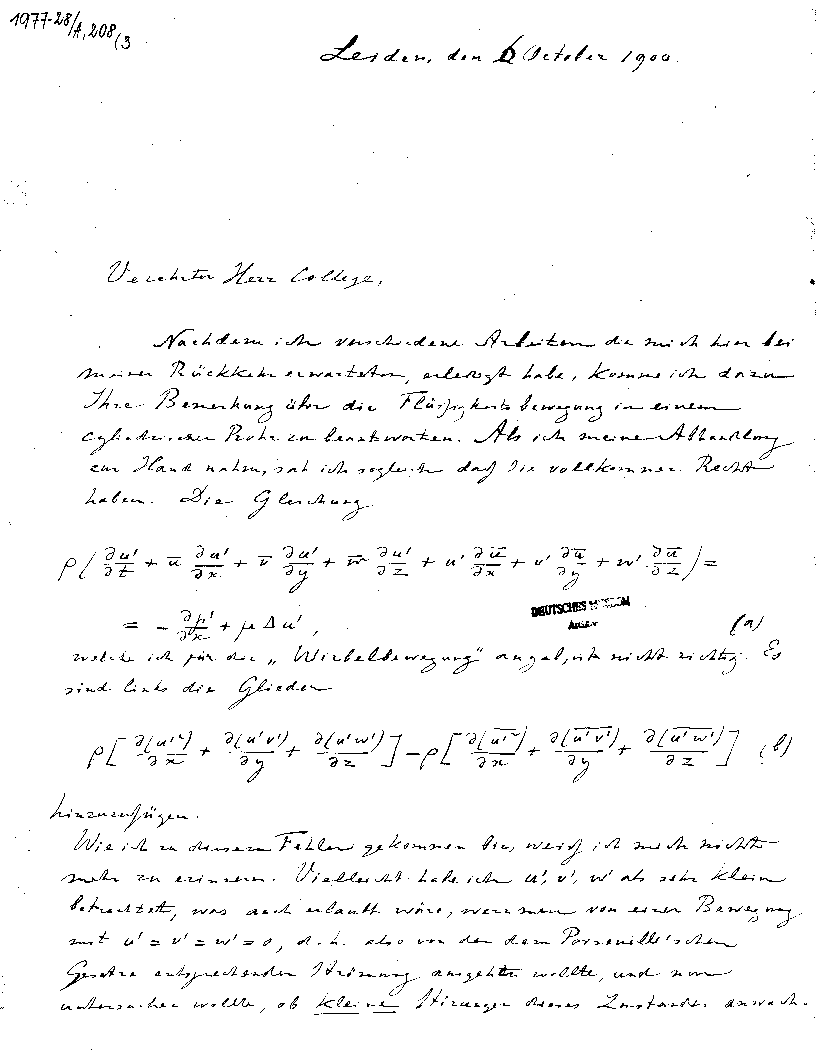 1977-28/A,208(3
Leiden, den 6 October 1900.
Verehrter Herr College,
Nachdem ich verschiedene Arbeiten die mich hier bei
meiner Rückkehr erwarteten, erledigt habe, komme ich dazu
Ihre Bemerkung über die Flüssigkeitsbewegung in einem
cylindrischen Rohr zu beantworten. Als ich meine Abhandlung
zur Hand nahm, sah ich sogleich daß Sie vollkommen Recht
haben. Die Gleichung
ρ(∂u'/∂t + ū ∂u'/∂x + v̄ ∂u'/∂y + w̄ ∂u'/∂z + u' ∂ū/∂x + v' ∂ū/∂y + w' ∂ū/∂z) =
= - ∂p'/∂x + μ Δ u',
DEUTSCHES MUSEUM
Archiv
(a)
welche ich für die „Wirbelbewegung" angab, ist nicht richtig. Es
sind links die Glieder
ρ[∂(u'²)/∂x + ∂(u'v')/∂y + ∂(u'w')/∂z] - ρ[∂(u'²‾)/∂x + ∂(u'v'‾)/∂y + ∂(u'w'‾)/∂z] (b)
hinzuzufügen.
Wie ich zu diesem Fehler gekommen bin, weiß ich mich nicht
mehr zu erinnern. Vielleicht habe ich u', v', w' als sehr klein
betrachtet, was auch erlaubt wäre, wenn man von einer Bewegung
mit u' = v' = w' = 0, d.h. also von der dem Poiseuille'schen
Gesetze entsprechenden Strömung ausgehen wollte, und nun
untersuchen wollte, ob kleine Störungen dieses Zustandes anwach-